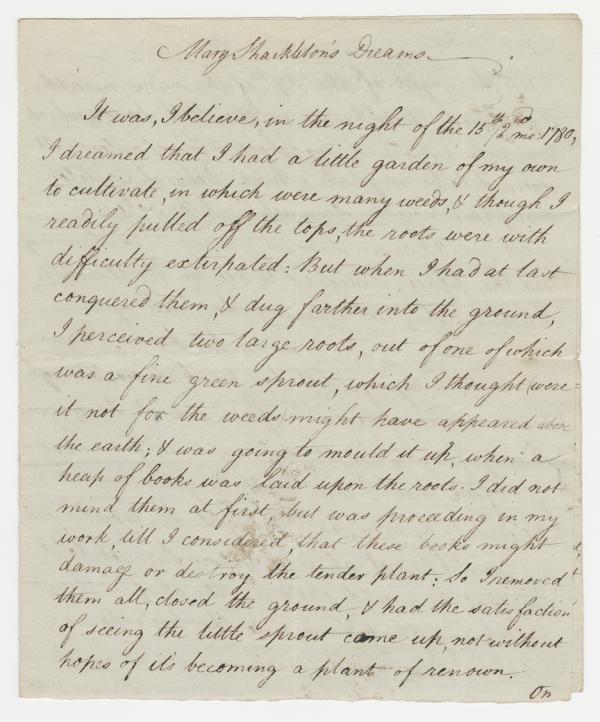 Mary Shackleton's Dreams.
It was, I believe, in the night of the 15th/2nd mo: 1780,
I dreamed that I had a little garden of my own
to cultivate, in which were many weeds, & though I
readily pulled off the tops, the roots were with
difficulty extirpated: But when I had at last
conquered them, & dug farther into the ground,
I perceived two large roots, out of one of which
was a fine green sprout, which I thought (were
it not for the weeds) might have appeared above
the earth; & was going to mould it up, when a
heap of books was laid upon the roots. I did not
mind them at first, but was proceeding in my
work, till I considered, that these books might
damage or destroy the tender plant: So I removed
them all, closed the ground, & had the satisfaction
of seeing the little sprout come up, not without
hopes of it's becoming a plant of renown.
On